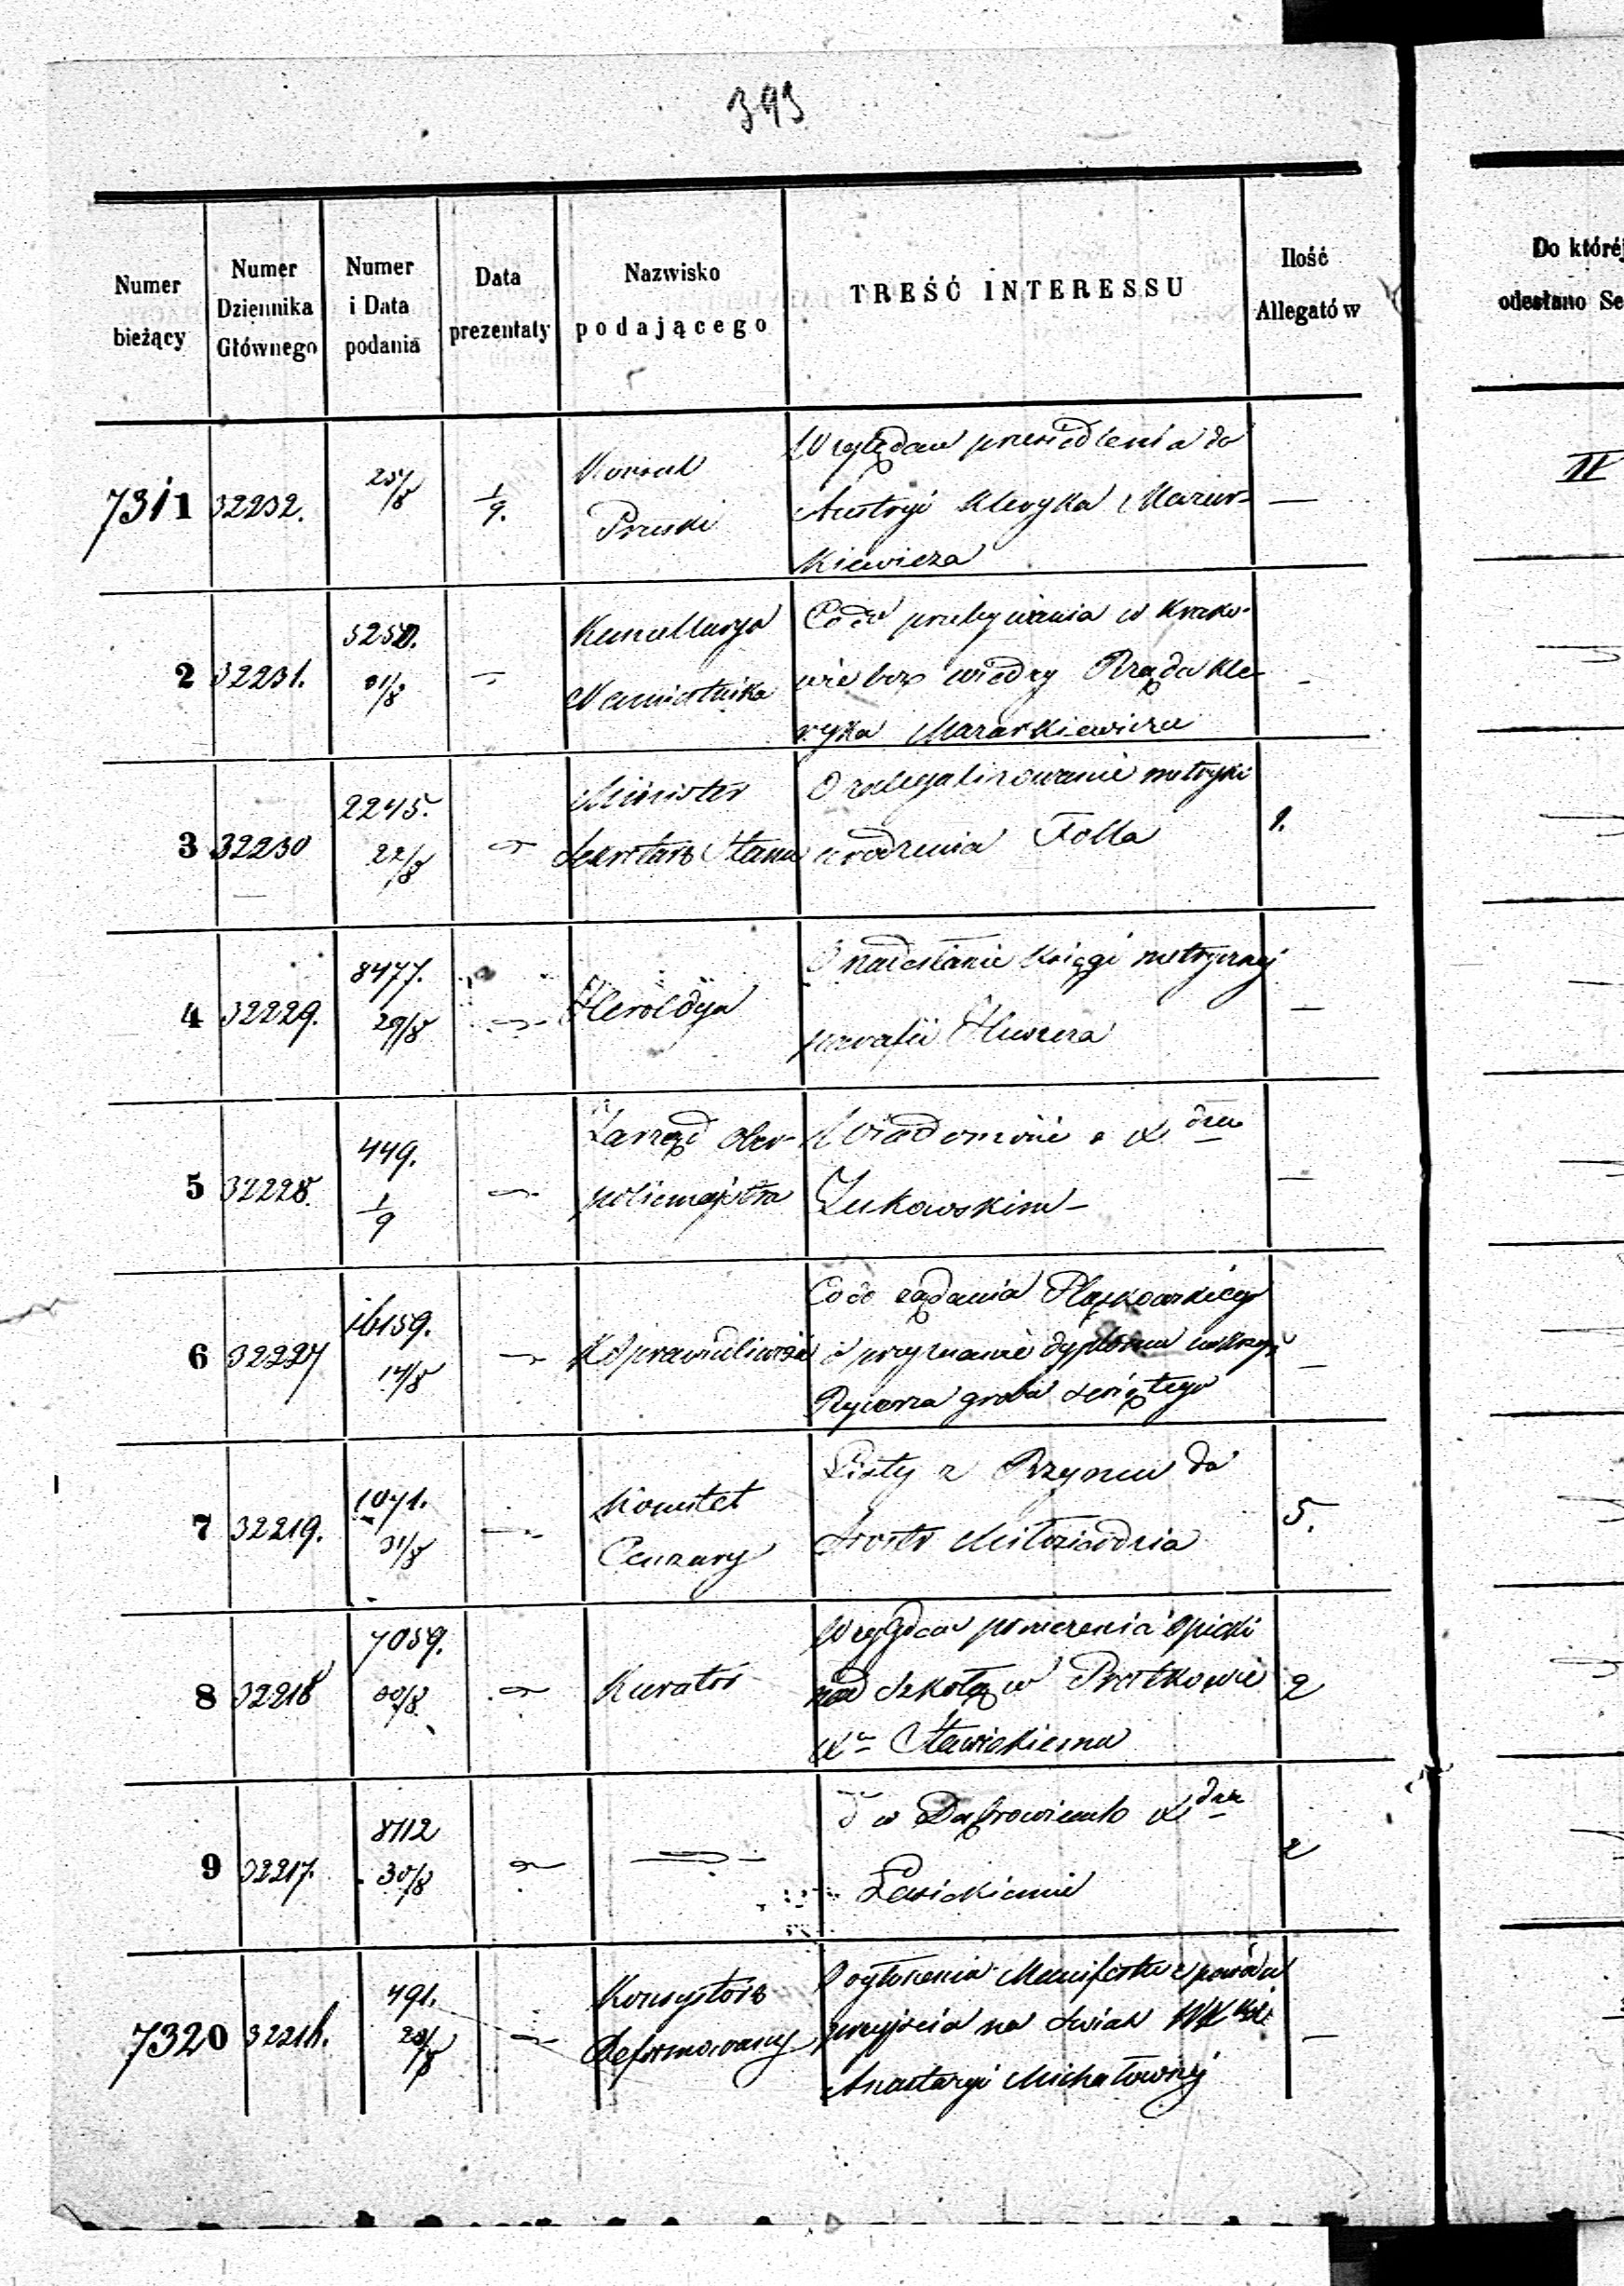 393
Numer bieżący | Numer Dziennika Głównego | Numer i Data podania | Data prezentaty | Nazwisko podającego | TREŚĆ INTERESSU | Ilość Allegatów | Do któréj odesłano Se
7311 | 32232. | 25/8 | 1/9. | Konsul Pruski | Względem przesiedlenia do
Austryi Kleryka Mazur-
kiewicza | — | II
2 | 32231. | 31/8 | Kancellarya Namiestnika | Co do przebywania w Krako-
wie bez wiedzy Rządu Kle-
ryka Mazurkiewicza | -
3 | 32230 | 2245. 22/8 | Minister Sekretarz Stanu | O zalegalizowanie metryki
urodzenia Folla | 1.
4 | 32229. | 8477. 29/8 | Heroldya | O nadesłanie księgi metrycznej
parafii | —
5 | 32228. | 449. 1/9 | Zarząd Ober-
policmajstra | Wiadomość o X.
Żukowskim — | —
6 | 32227 | 16159. 14/8 | K Sprawiedliwości | Co do żądania
o przyznanie dyplomu
Rycerza grobu świętego | —
7 | 32219. | 1071. 31/8 | Komitet Cenzury | Listy z Rzymu do
Siostr Miłosierdzia | 5.
8 | 32218 | 7059. 30/8 | Kurator | Względem powierzenia opieki
nad szkołą w
Xu Stawickiemu | 2
9 | 32217. | 8112 30/8 | — | d w Dąbrowicach X
Lewickiemu | 2
7320 | 32216. | 491. 28/8 | Konsystorz Reformowany | O ogłoszenia Manifestu z powodu
przyjścia na świat WX
Anastazyi Michałownej | —